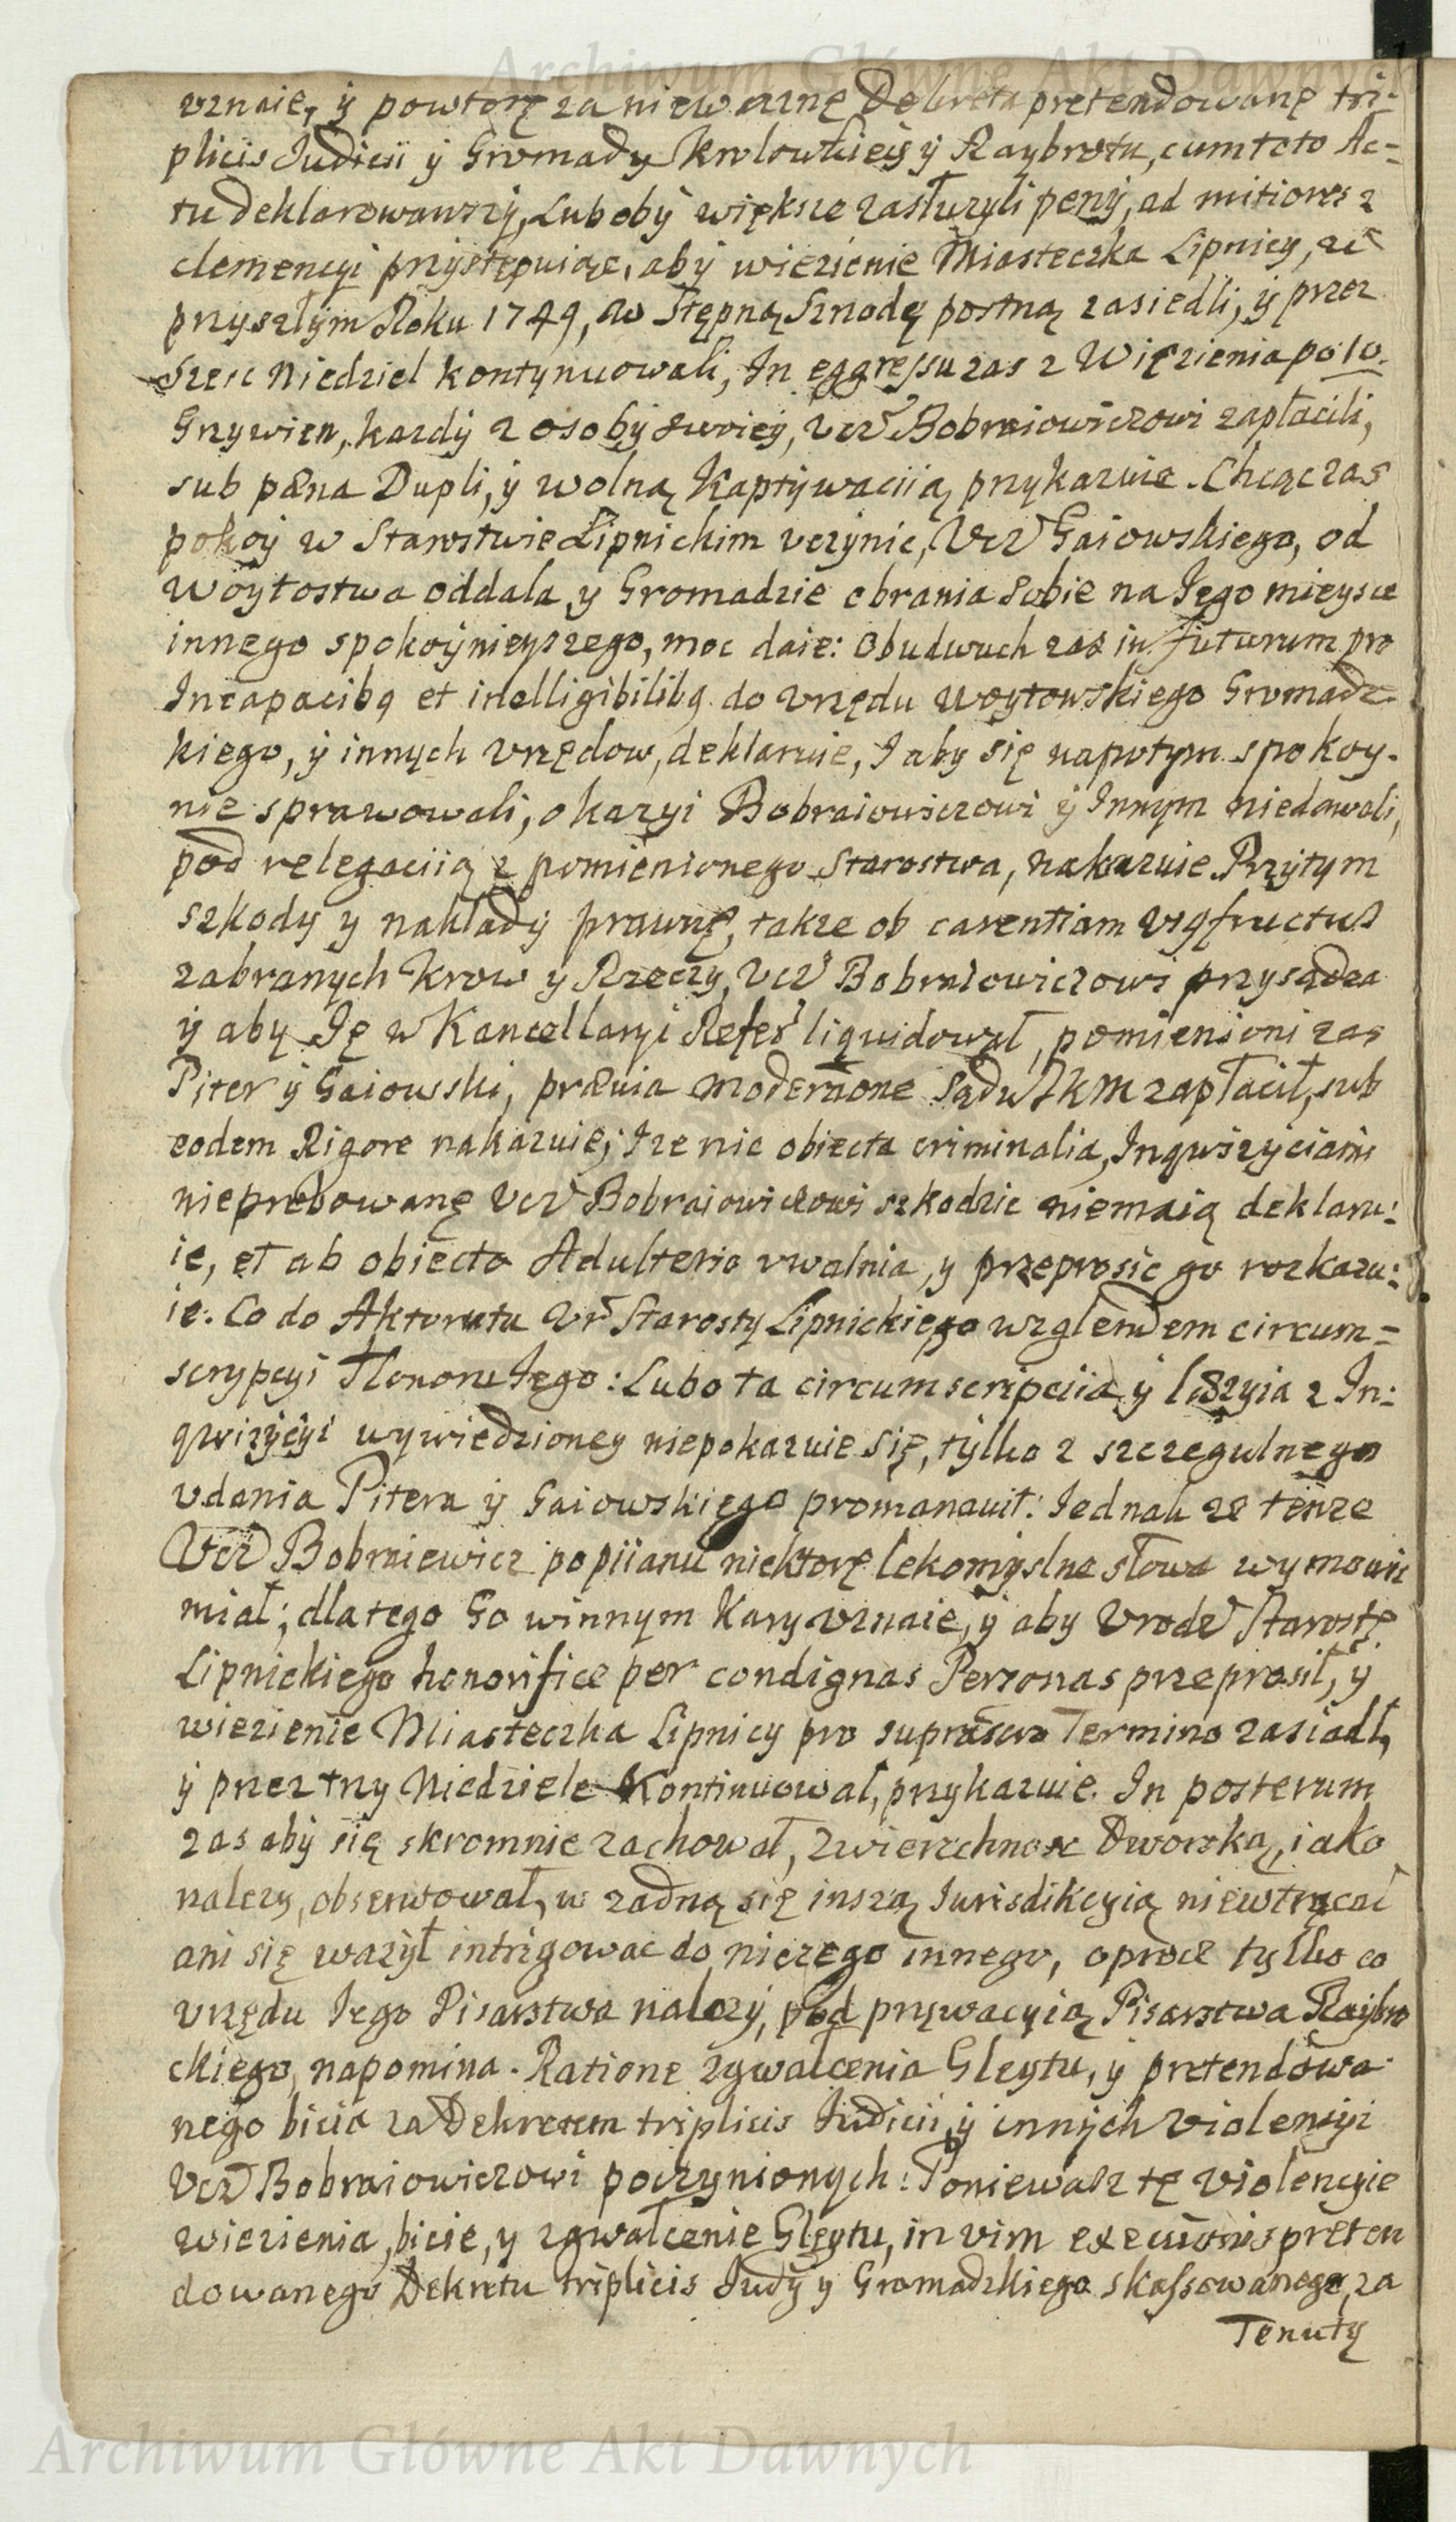 Archiwum Główne Akt Dawnych
uznaie, ÿ powtorę za nieważnę Dekreta pretendowanę tri-
plicis Judicii ÿ Gromady Krolowkieÿ ÿ Raybrotu, cum toto Ac=
tu deklarowawszÿ, Lubobÿ większe zasłuzyli penÿ, ad mitiores z
clemencÿi przÿstępuiąc, abÿ wiezienie Miasteczka Lipnicy, w
przyszłÿm Roku 1749, w Stępną Srzodę postną zasiedli, ÿ przez
Szesc Niedziel kontÿnuowali, In eggressu zas z Więzienia po 10.
Grzywien, kazdÿ z osobÿ swoieÿ, Ucz Bobraiowiczowi zapłacili,
sub pæna Dupli, ÿ wolną Kaptÿwaciią przykazuie. Chcąc zas
pokoÿ w Starostwie Lipnickim uczynic, Ucz Gaiowskiego, od
Woÿtostwa oddala y Gromadzie obrania Sobie na Jego mieysce
innego spokoÿnieyszego, moc daie: Obudwuch zas in futurum pro
Incapacibq et inelligibilibq do Urzędu Woytowskiego Gromadz-
kiego, ÿ innych Urzędow, deklaruie, I aby się napotym spokoy-
nie sprawowali, okazyi Bobraiowiczowi ÿ Innym niedawali,
pod relegaciią z pomienionego Starostwa, nakazuie. Przÿtym
szkody y nakładÿ prawnę, takze ob carentiam usqfructus
zabranych Krow ÿ Rzeczy, Ucz Bobraiowiczowi przysądza
ÿ aby Ję w Kancellaryi Refer liquidował, pomienioni zas
Piter ÿ Gaiowski, prævia moderaone Sądu JKM zapłacił, sub
eodem Rigore nakazuie; I ze nic obiecta criminalia, Inquizÿciami
nieprobowanę Ucz Bobraiowiczowi szkodzic niemaią deklaru:
ie, et ab obiecto Adulterio uwalnia, y przeprosic go rozkazu:
ie. Co do Aktoratu Ur Starosty Lipnickiego względem circum=
scrypcyi Honoru Jego: Lubo ta circumscripciia ÿ læzyia z In:
qwizÿcyi wywiedzioney niepokazuie się, tylko z szczegulnego
udania Pitera ÿ Gaiowskiego promanavit: Jednak ze tenze
Ucz Bobraiewicz popiianu niektorę lekomyslne słowa wymowic
miał; dlatego Go winnym Kary uznaie, ÿ aby Urodz Starostę
Lipnickiego honorifice per condignas Personas przeprosił, ÿ
wiezienie Miasteczka Lipnicy pro suprascro Termino zasiadł,
ÿ przez trzy Niedziele Kontinuował, przykazuie. In posterum
zas abÿ się skromnie zachował, Zwierzchnosc Dworską, iako
nalezy, obserwował, w zadną się inszą Iurisdikcyią niewtrącał
ani się wazÿł intrigowac do niczego innego, oprocz tylko co
urzędu Jego Pisarstwa nalezÿ, pod prywacyią Pisarstwa Raybro
ckiego, napomina. Ratione zgwałcenia Gleytu, ÿ pretendowa-
nego bicia za Dekretem triplicis Iudicii, ÿ innÿch violencyi
Ucz Bobraiowiczowi poczynionych: Poniewasz tę violencyie
wiezienia, bicie, y zgwałcenie Gleytu, in vim execuionis preten
dowanego Dekretu triplicis Judÿ y Gromadzkiego skassowanego, za
Tenuty
Archiwum Główne Akt Dawnych